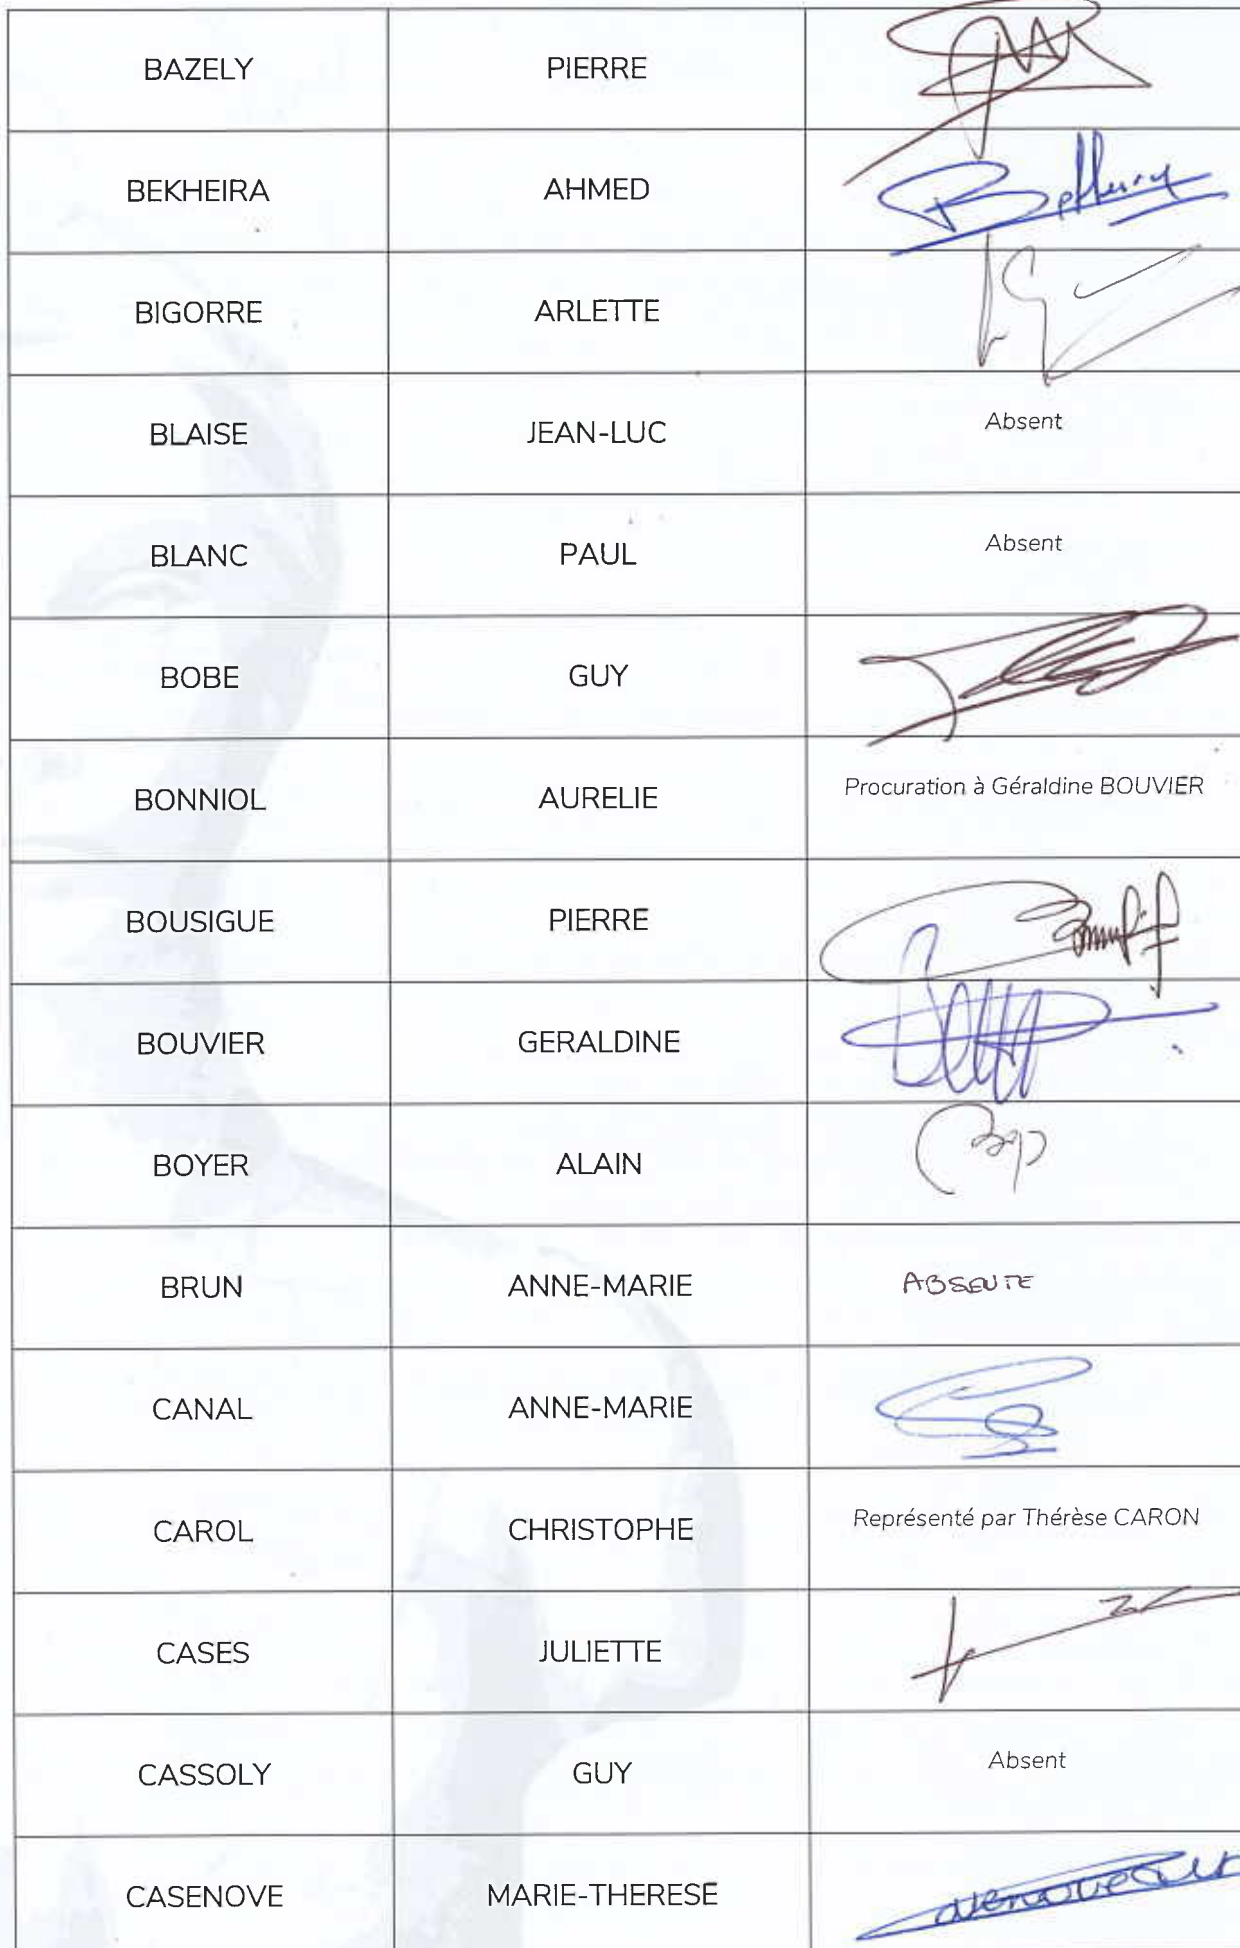 BAZELY PIERRE
BEKHEIRA AHMED
BIGORRE ARLETTE
BLAISE JEAN-LUC Absent
BLANC PAUL Absent
BOBE GUY
BONNIOL AURELIE Procuration à Géraldine BOUVIER
BOUSIGUE PIERRE
BOUVIER GERALDINE
BOYER ALAIN
BRUN ANNE-MARIE ABSENTE
CANAL ANNE-MARIE
CAROL CHRISTOPHE Représenté par Thérèse CARON
CASES JULIETTE
CASSOLY GUY Absent
CASENOVE MARIE-THERESE